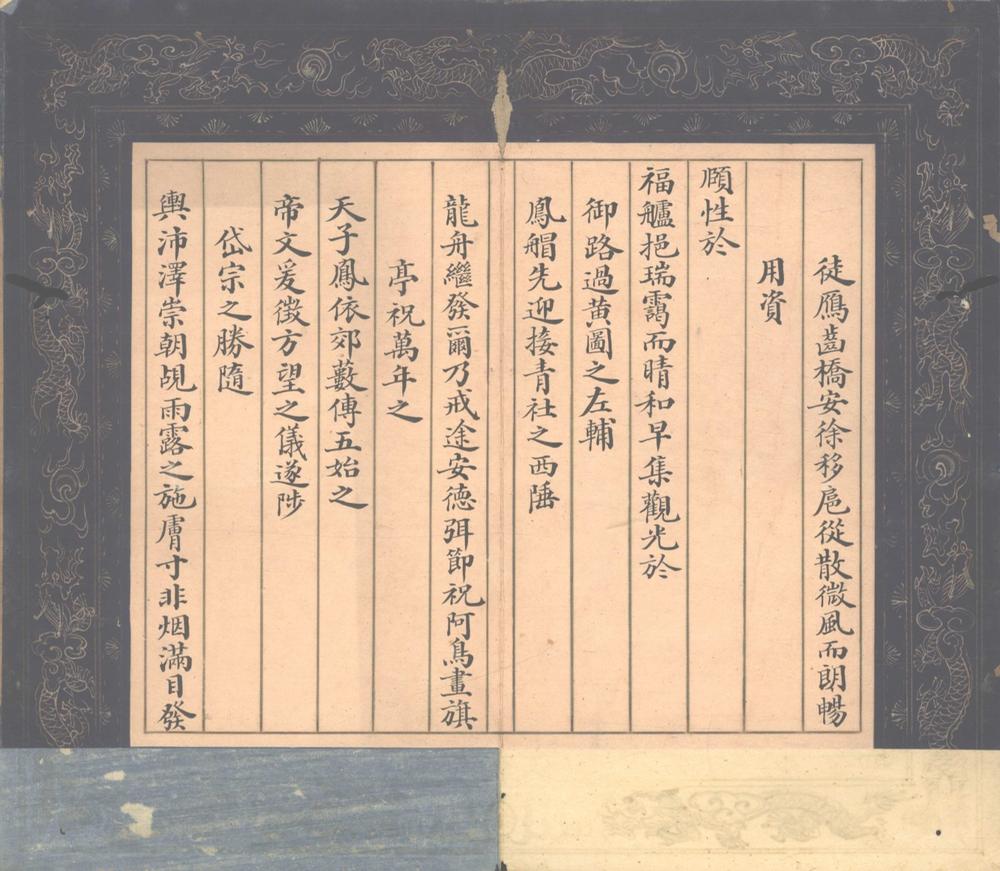 徒鴈齒橋安徐移扈從散微風而朗暢
用資
頤性於
福艫挹瑞靄而晴和早集觀光於
御路過黄圖之左輔
鳳艒先迎接青社之西陲
龍舟繼發爾乃戒途安德弭節祝阿鳥畫旗
亭祝萬年之
天子鳳依郊藪傳五始之
帝文爰徴方望之儀遂陟
岱宗之勝隨
輿沛澤崇朝覘雨露之施膚寸非烟滿目發